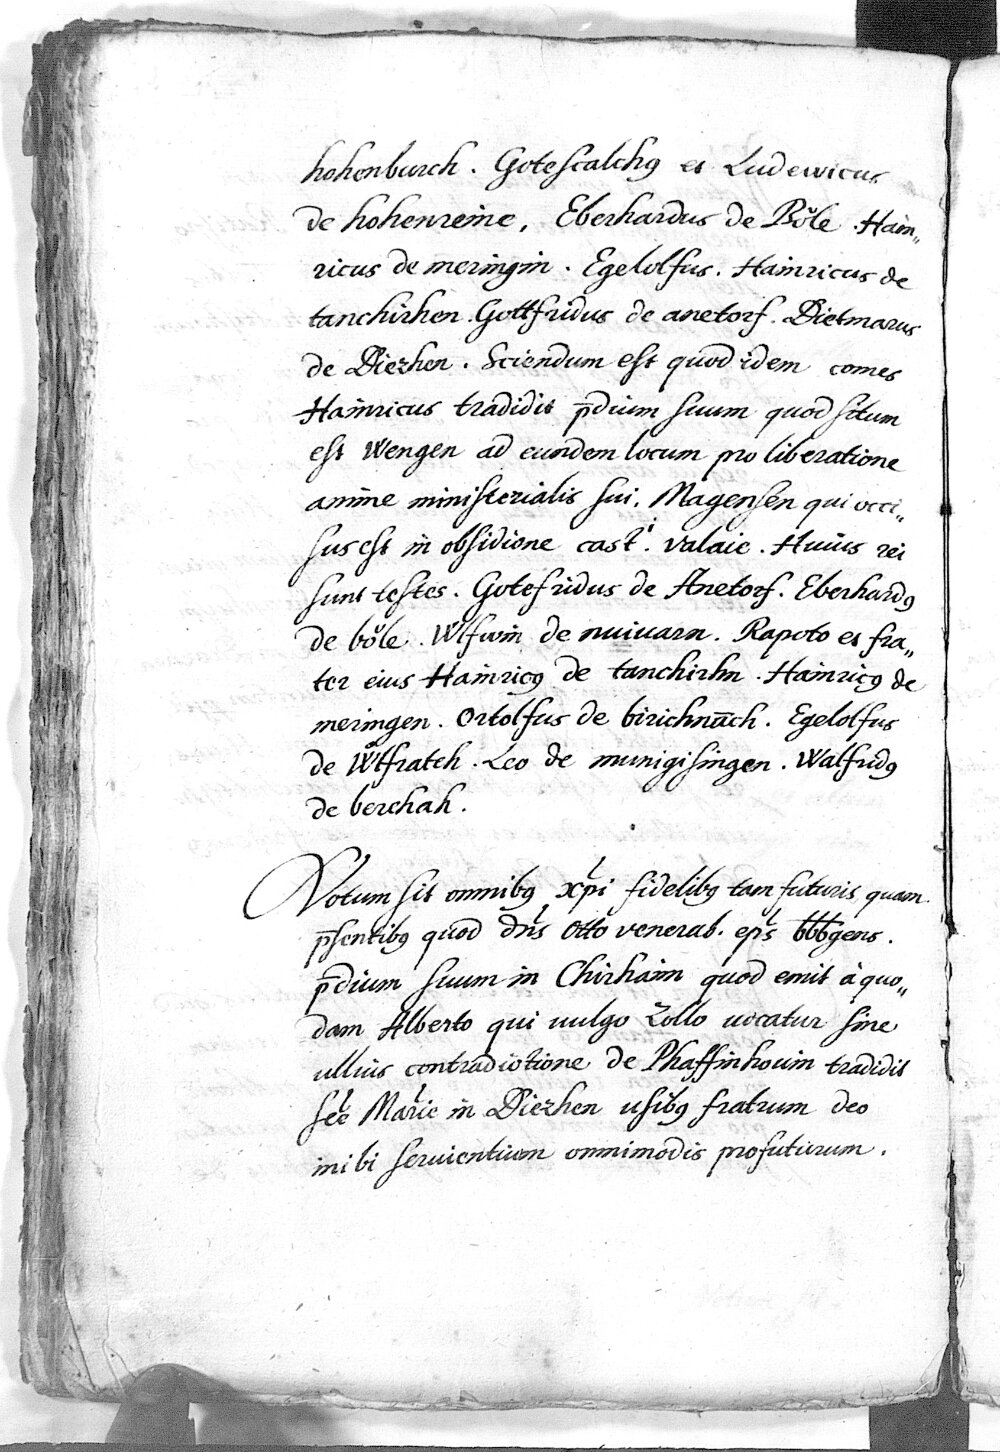 hohenburch. Gotescalchꝯ et Ludewicus
de hohenreine, Eberhardus de Bǒle. Hain„
ricus de meringin. Egelolfus. Hainricus de
tanchirhen. Gottfridus de anetorf. Dietmarus
de Diezhen. Sciendum est quod idem comes
Hainricus tradidit p̄dium suum quod situm
est Wengen ad eundem locum pro liberatione
anime ministerialis sui, Magensen qui occi„
sus est in obsidione castⁱ. valaie. Huius rei
sunt testes. Gotefridus de Anetorf. Eberhardꝯ
de bǒle. Wlfwin de nuiuarn. Rapoto et fra„
ter eius Hainricꝯ de tanchirhn. Hainricꝯ de
meringen. Ortolfus de birichnāch. Egelolfus
de Wͦlfrateh. Leo de munigisingen. Walfridꝯ
de berchah.
Notum sit omnibꝯ xp̄i fidelibꝯ tam futuris quam
p̄sentibꝯ quod dn̄s Otto venerab. ep̄s bbbgens.
p̄dium suum in Chirhaim quod emit à quo„
dam Alberto qui uulgo Zollo uocatur sine
ullius contradictione de Phaffinhouin tradidit
sc̄e Marie in Diezhen usibꝯ fratrum deo
inibi seruientium omnimodis profuturum.